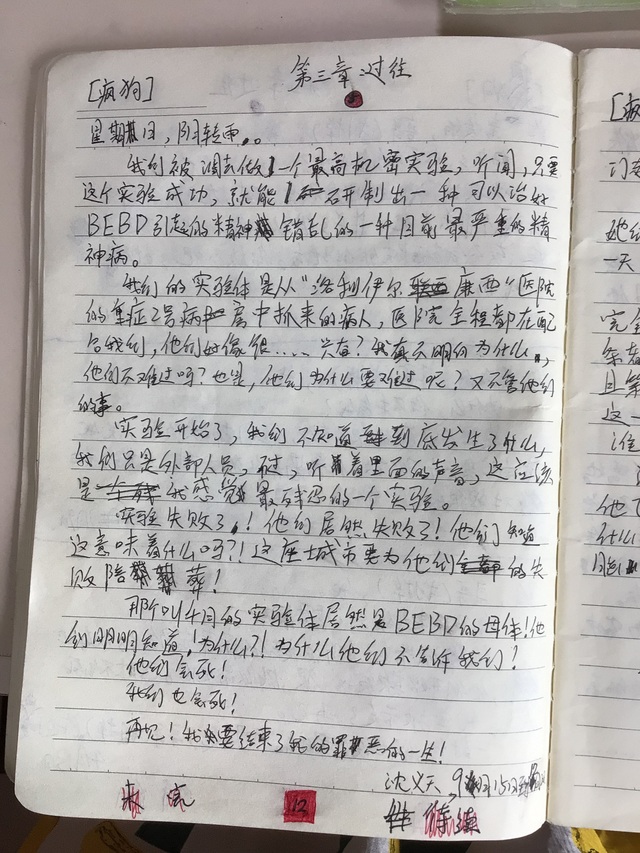 第三章 过往
[疯狗]
星期日，阴转雨。
我们被调去做一个最高机密实验，听闻，只要
这个实验成功，就能研制出一种可以治好
BEBD引起的精神错乱的一种目前最严重的精
神病。
我们的实验体是从“洛利伊尔康西”医院
的重症2号病房中抓来的病人，医院全程都在配
合我们，他们好像很……兴奋？我真不明白为什么，
他们不难过吗？也是，他们为什么要难过呢？又不管他们
的事。
实验开始了，我们不知道到底发生了什么，
我们只是外部人员，不过，听着里面的声音，这应该
是我感觉最残忍的一个实验。
实验失败了！他们居然失败了！他们知道
这意味着什么吗？！这座城市要为他们的失
败陪葬！
那个叫千月的实验体居然是BEBD的母体！他
们明明知道！为什么？！为什么他们不告诉我们？
他们会死！
我们也会死！
再见！我要结束了我的罪恶的一生！
沈义天，9月15日
12